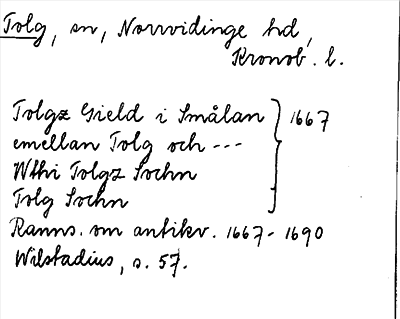 Tolg, sn, Norrvidinge hd,
Kronob. l.
Tolgz Gield i Smålan } 1667
emellan Tolg och ---
Wthi Tolgz Sochn
Tolg Sochn
Ranns. om antikv. 1667-1690
Wilstadius, s. 57.